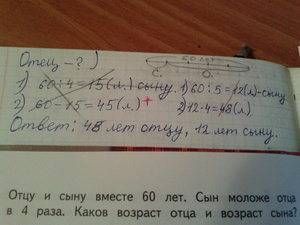 60 лет
Отец - ? )
С. О.
1) 60:4=15(л.) сыну. 1) 60:5=12(л)-сыну
2) 60-15=45(л.) + 2) 12·4=48(л)
Ответ: 48 лет отцу, 12 лет сыну.
Отцу и сыну вместе 60 лет. Сын моложе отца
в 4 раза. Каков возраст отца и возраст сына?